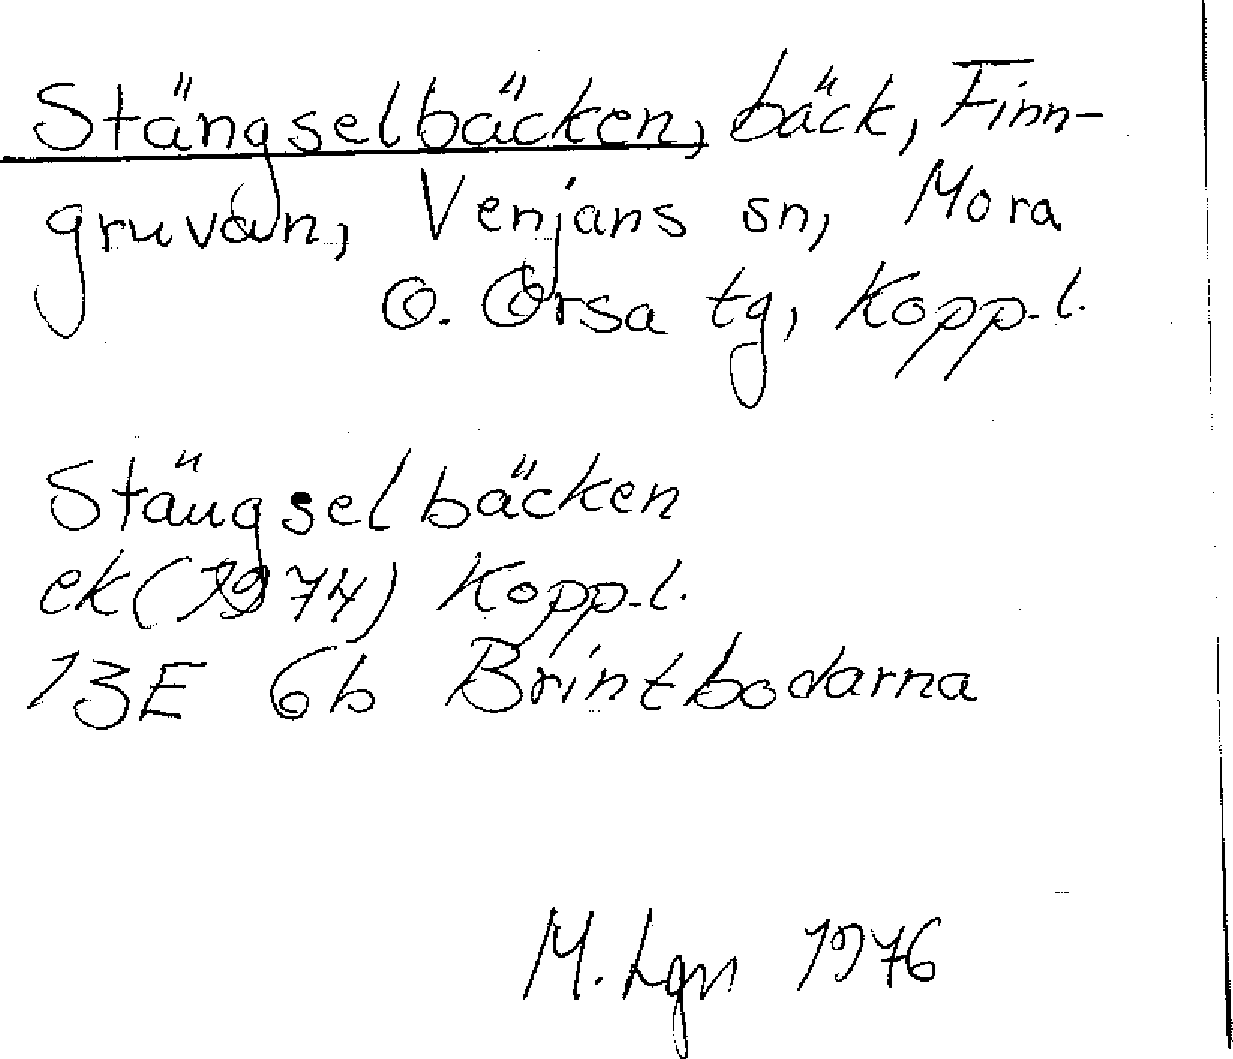 Stängselbäcken, bäck, Finn-
gruvan, Venjans sn, Mora
o. Orsa tg, Kopp. l.
Stängselbäcken
ek (1974) Kopp. l.
13E 6b Brintbodarna
M. Lgn 1976